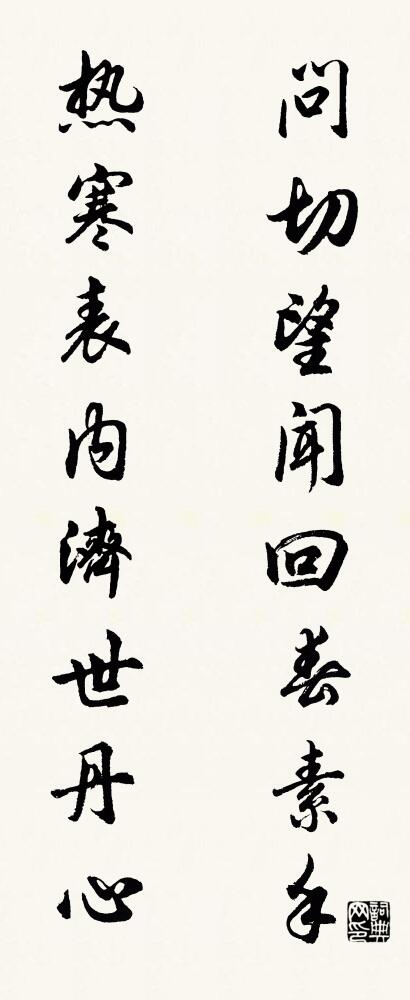 问切望闻回春素手
热寒表内濟世丹心
詞典网印